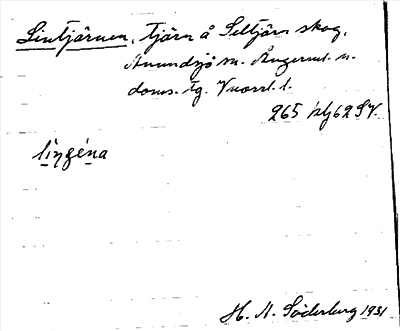 Lintjärnen, tjärn å Seltjärn skog,
Anundsjö sn. Ångermt. n.
doms. tg. Vnorrl. l.
265 1/4 62 SV.
lingéna
H. A. Söderberg 1931